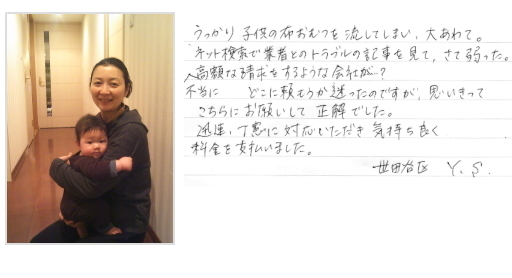 うっかり子供の布おむつを流してしまい、大あわて。
ネット検索で業者とのトラブルの記事を見て、さて弱った。
不当に高額な請求をするような会社が…?
どこに頼もうか迷ったのですが、思いきって
こちらにお願いして正解でした。
迅速、丁寧に対応いただき気持ち良く
料金を支払いました。
世田谷区 Y.S.